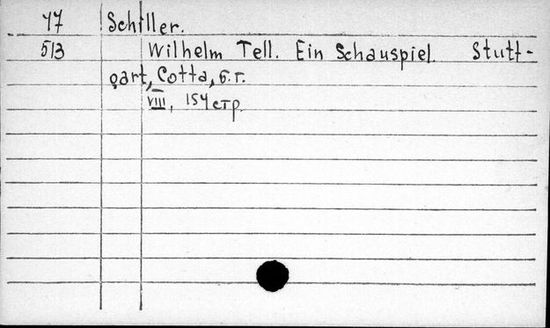 77 Schiller.
513 Wilhelm Tell. Ein Schauspiel. Stutt-
gart, Cotta, б.г.
VIII, 154 стр.